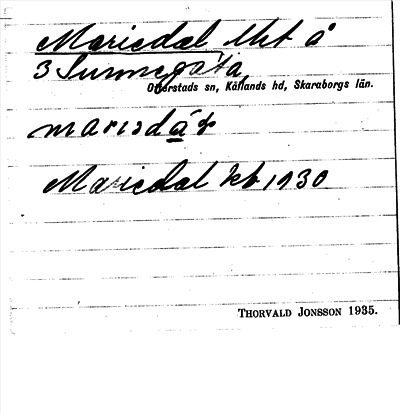 Mariedal lht å
3 Sunnegåta
Otterstads sn, Kållands hd, Skaraborgs län.
Mariedal kb 1930
THORVALD JONSSON 1935.